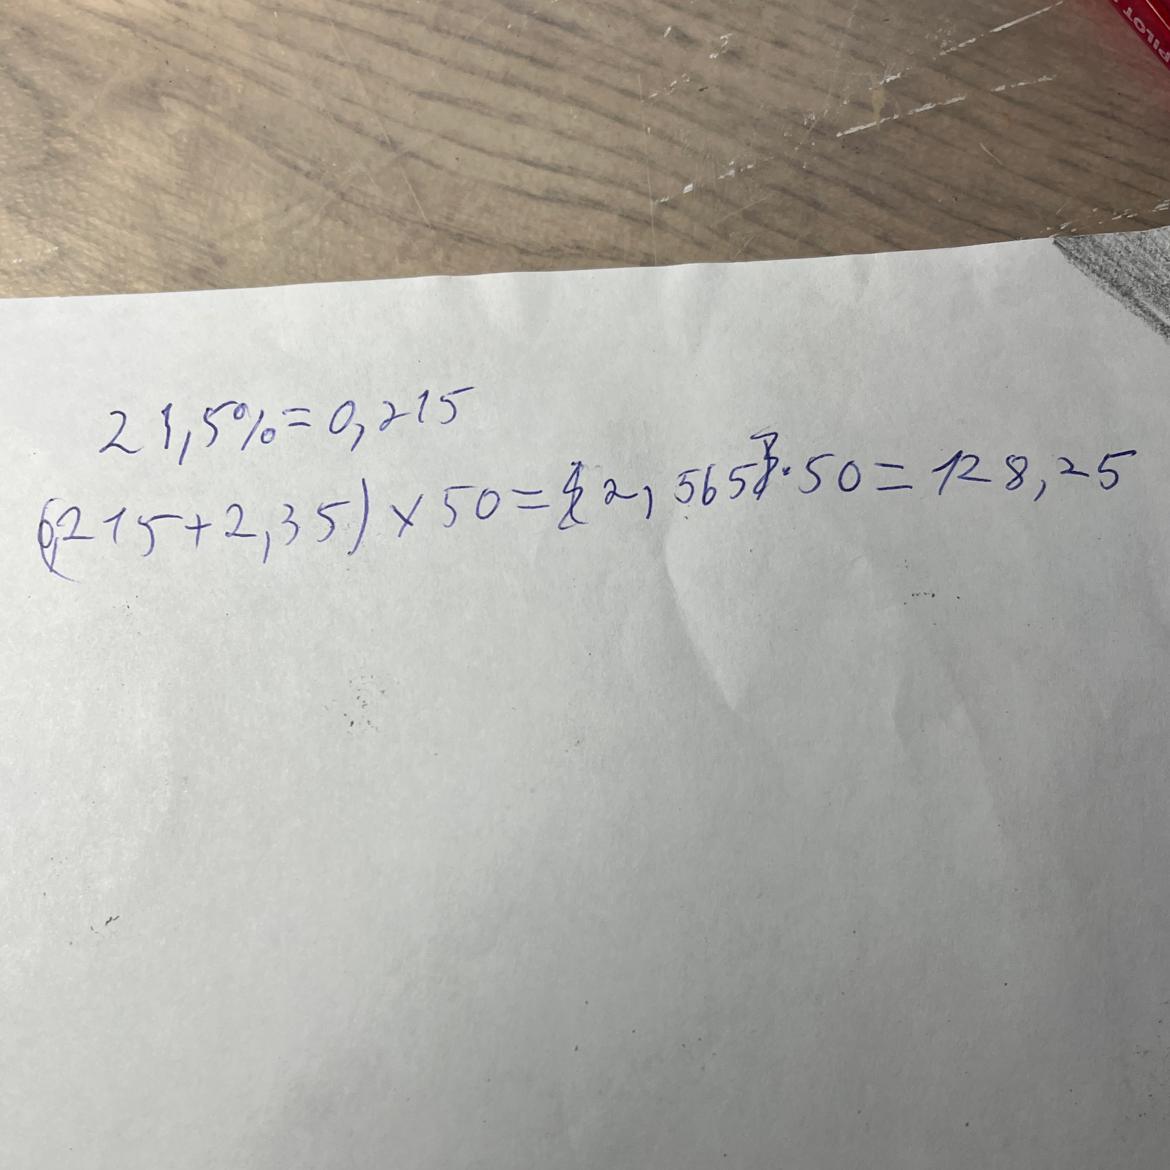 PILOT
21,5%=0,215
(0,215+2,35) x 50= 2,565·50=128,25